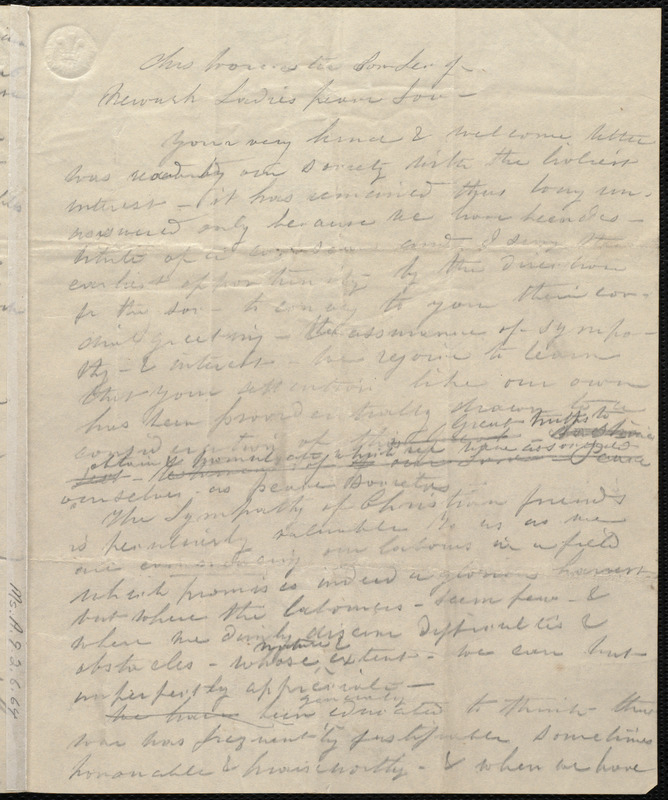 Newark Ladies peace Soc -
Your very kind & welcome letter
was read by our Society with the liveliest
interest - it has remained thus long un-
answered only because we have been des-
titute of a and I seize the
earliest opportunity by the direction
of the Soc - to convey to you their cor-
dial greeting - the assurance of sympa-
thy - & interest - We rejoice to learn
that your attention like our own
has been providentially drawn to a
consideration of the great truths to
obtain & promote which we have associated
ourselves - as peace Societies
The Sympathy of Christian friends
is peculiarly valuable to us as we
are commencing our labours in a field
which promises indeed a glorious harvest -
but where the labourers - seem few - &
where we dimly discern difficulties &
obstacles - whose nature & extent - we can but
imperfectly appreciate -
We have been generally educated to think that
war was frequently justifiable sometimes
honorable & praiseworthy - & when we have
Ms.A.9.2.6.64